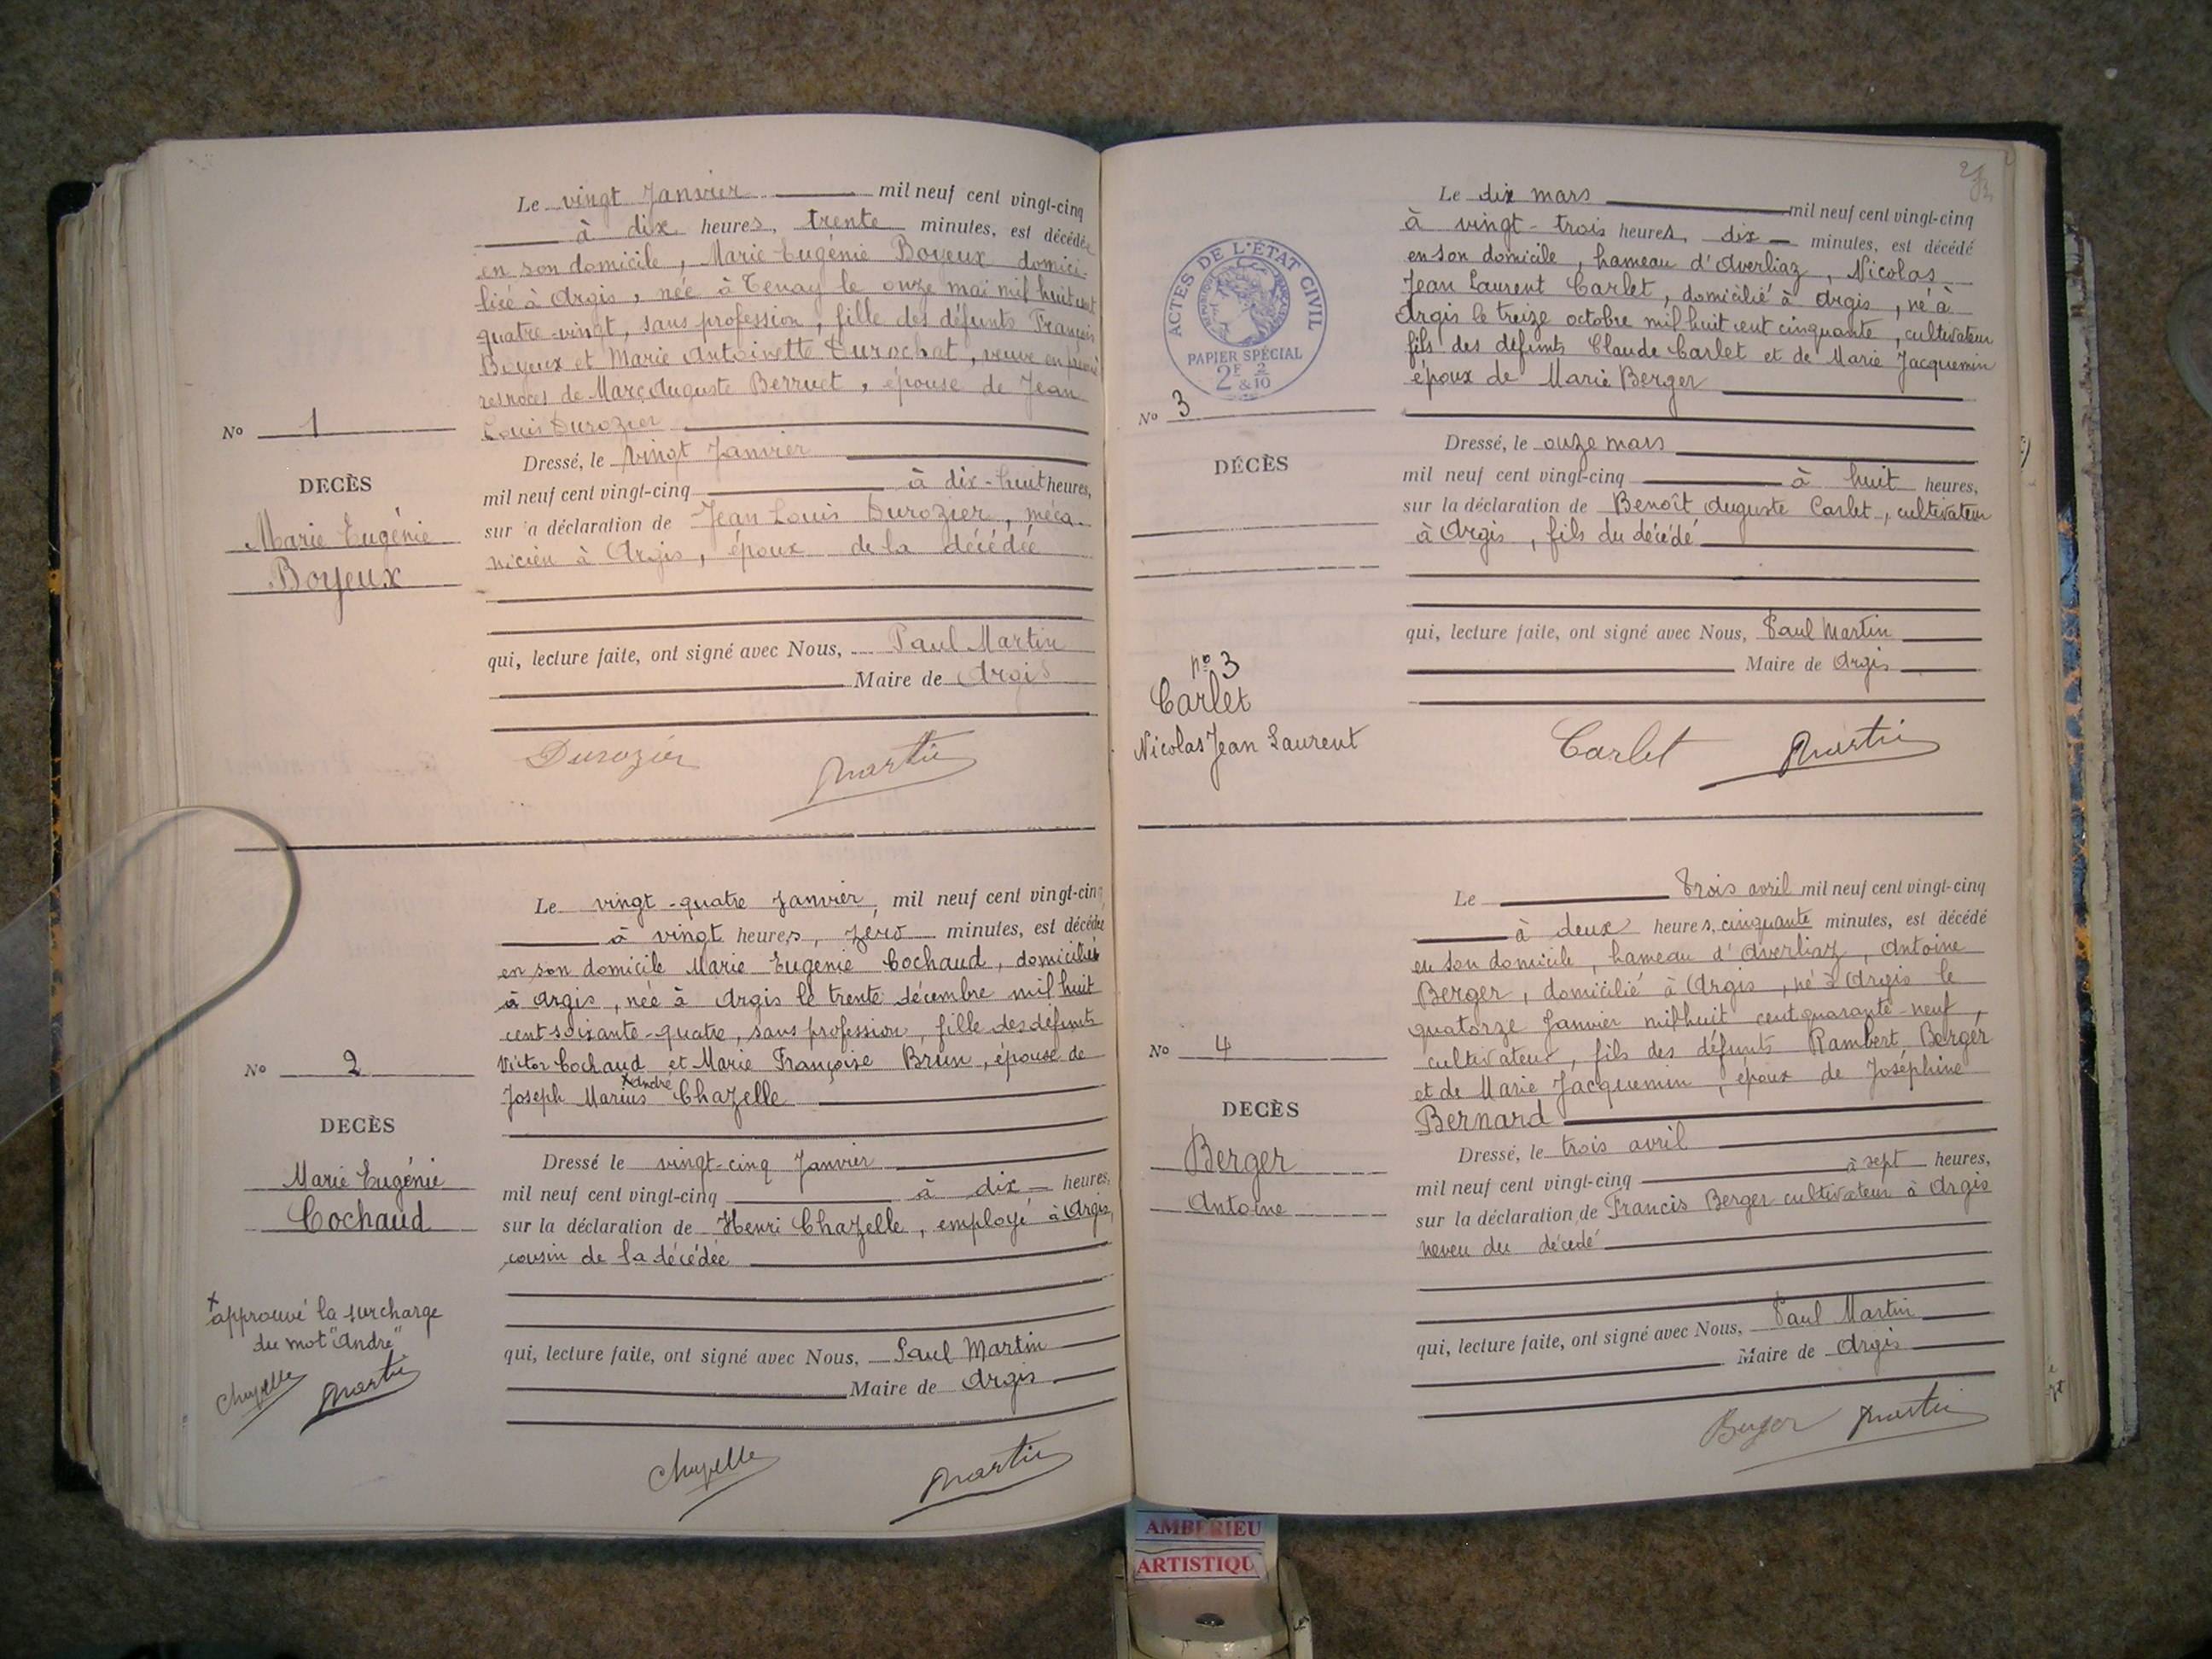 Le vingt Janvier mil neuf cent vingt-cinq
à dix heures, trente minutes, est décédée
en son domicile, Marie Eugénie Boyeux domici-
liée à Argis, née à Tenay le onze mai mil huit cent
quatre-vingt, sans profession, fille des défunts François
Boyeux et Marie Antoinette Durochat, veuve en premiè
res noces de Marc Auguste Berruet, épouse de Jean
Louis Durozier
No 1
DECÈS
Marie Eugénie
Boyeux
Dressé, le vingt Janvier
mil neuf cent vingt-cinq à dix-huit heures,
sur la déclaration de Jean Louis Durozier, méca-
nicien à Argis, époux de la décédée
qui, lecture faite, ont signé avec Nous, Paul Martin
Maire de Argis
Durozier Martin
Le vingt-quatre Janvier, mil neuf cent vingt-cinq
à vingt heures, zéro minutes, est décédée
en son domicile Marie Eugénie Cochaud, domiciliée
à Argis, née à Argis le trente décembre mil huit
cent soixante-quatre, sans profession, fille des défunts
Victor Cochaud et Marie Françoise Brun, épouse de
Joseph Marius xAndré Chazelle
No 2
DECÈS
Marie Eugénie
Cochaud
x approuvé la surcharge
du mot "André"
Chazelle Martin
Dressé le vingt-cinq Janvier
mil neuf cent vingt-cinq à dix heures,
sur la déclaration de Henri Chazelle, employé à Argis,
cousin de la décédée
qui, lecture faite, ont signé avec Nous, Paul Martin
Maire de Argis
Chazelle Martin
Le dix mars mil neuf cent vingt-cinq
à vingt-trois heures, dix minutes, est décédé
en son domicile, hameau d'Averliaz, Nicolas
Jean Laurent Carlet, domicilié à Argis, né à
Argis le treize octobre mil huit cent cinquante, cultivateur
fils des défunts Claude Carlet et de Marie Jacquemin
époux de Marie Berger
ACTES DE L'ÉTAT CIVIL
RÉPUBLIQUE FRANÇAISE
PAPIER SPÉCIAL
2F 2/10
&10
No 3
DÉCÈS
no 3
Carlet
Nicolas Jean Laurent
Dressé, le onze mars
mil neuf cent vingt-cinq à huit heures,
sur la déclaration de Benoît Auguste Carlet, cultivateur
à Argis, fils du décédé
qui, lecture faite, ont signé avec Nous, Paul Martin
Maire de Argis
Carlet Martin
Le Trois avril mil neuf cent vingt-cinq
à deux heures, cinquante minutes, est décédé
en son domicile, hameau d'Averliaz, Antoine
Berger, domicilié à Argis, né à Argis le
quatorze Janvier mil huit cent quarante-neuf,
cultivateur, fils des défunts Rambert Berger
et de Marie Jacquemin, époux de Joséphine
Bernard
No 4
DECÈS
Berger
Antoine
Dressé, le trois avril
mil neuf cent vingt-cinq à sept heures,
sur la déclaration de Francis Berger cultivateur à Argis
neveu du décédé
qui, lecture faite, ont signé avec Nous, Paul Martin
Maire de Argis
Berger Martin
AMBERIEU
ARTISTIQU